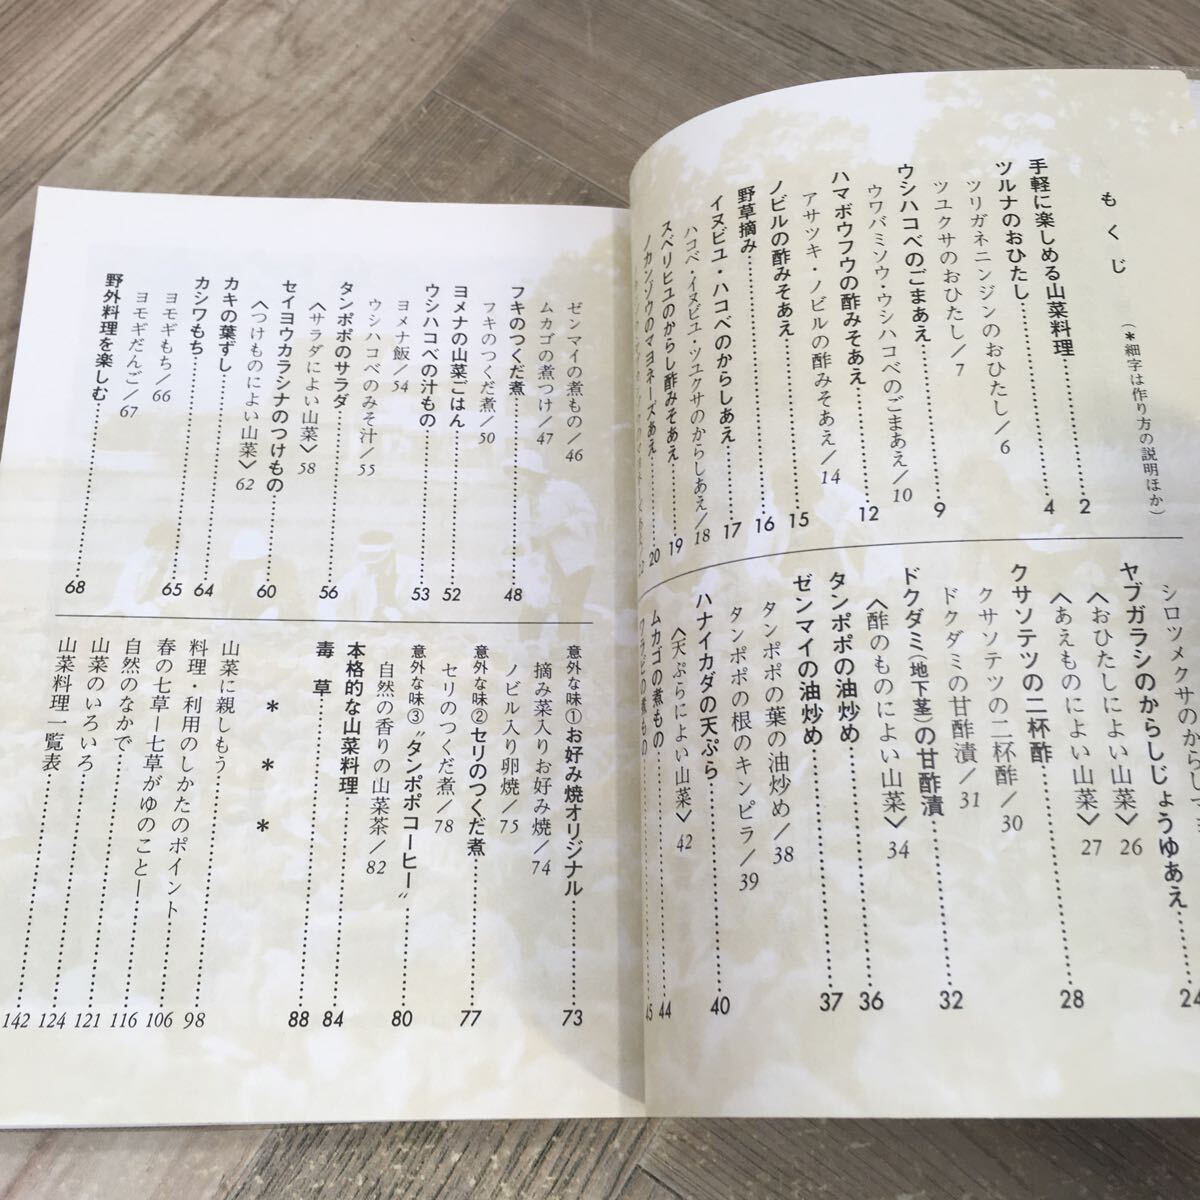 もくじ
(＊細字は作り方の説明ほか)
手軽に楽しめる山菜料理……2
ツルナのおひたし……4
ツリガネニンジンのおひたし／6
ツユクサのおひたし／7
ウシハコベのごまあえ……9
ウワバミソウ・ウシハコベのごまあえ／10
ハマボウフウの酢みそあえ……12
アサツキ・ノビルの酢みそあえ／14
ノビルの酢みそあえ……15
野草摘み……16
イヌビユ・ハコベのからしあえ……17
ハコベ・イヌビユ・ツユクサのからしあえ／18
スベリヒユのからし酢みそあえ……19
ノカンゾウのマヨネーズあえ……20
ヤブガラシのからしじょうゆあえ……24
〈おひたしによい山菜〉26
〈あえものによい山菜〉27
クサソテツの二杯酢……28
クサソテツの二杯酢／30
ドクダミの甘酢漬／31
ドクダミ(地下茎)の甘酢漬……32
〈酢のものによい山菜〉34
タンポポの油炒め……36
ゼンマイの油炒め……37
タンポポの葉の油炒め／38
タンポポの根のキンピラ／39
ハナイカダの天ぷら……40
〈天ぷらによい山菜〉42
ムカゴの煮もの……44
ワラビの煮もの……45
ゼンマイの煮もの／46
ムカゴの煮つけ／47
フキのつくだ煮……48
フキのつくだ煮／50
ヨメナの山菜ごはん……52
ウシハコベの汁もの……53
ヨメナ飯／54
ウシハコベのみそ汁／55
タンポポのサラダ……56
〈サラダによい山菜〉58
セイヨウカラシナのつけもの……60
〈つけものによい山菜〉62
カキの葉ずし……64
カシワもち……65
ヨモギもち／66
ヨモギだんご／67
野外料理を楽しむ……68
意外な味①お好み焼オリジナル……73
摘み菜入りお好み焼／74
ノビル入り卵焼／75
意外な味②セリのつくだ煮……77
セリのつくだ煮／78
意外な味③〝タンポポコーヒー〟……80
自然の香りの山菜茶／82
本格的な山菜料理……84
毒草……88
＊＊＊
山菜に親しもう……98
料理・利用のしかたのポイント……106
春の七草―七草がゆのこと―……116
自然のなかで……121
山菜のいろいろ……124
山菜料理一覧表……142